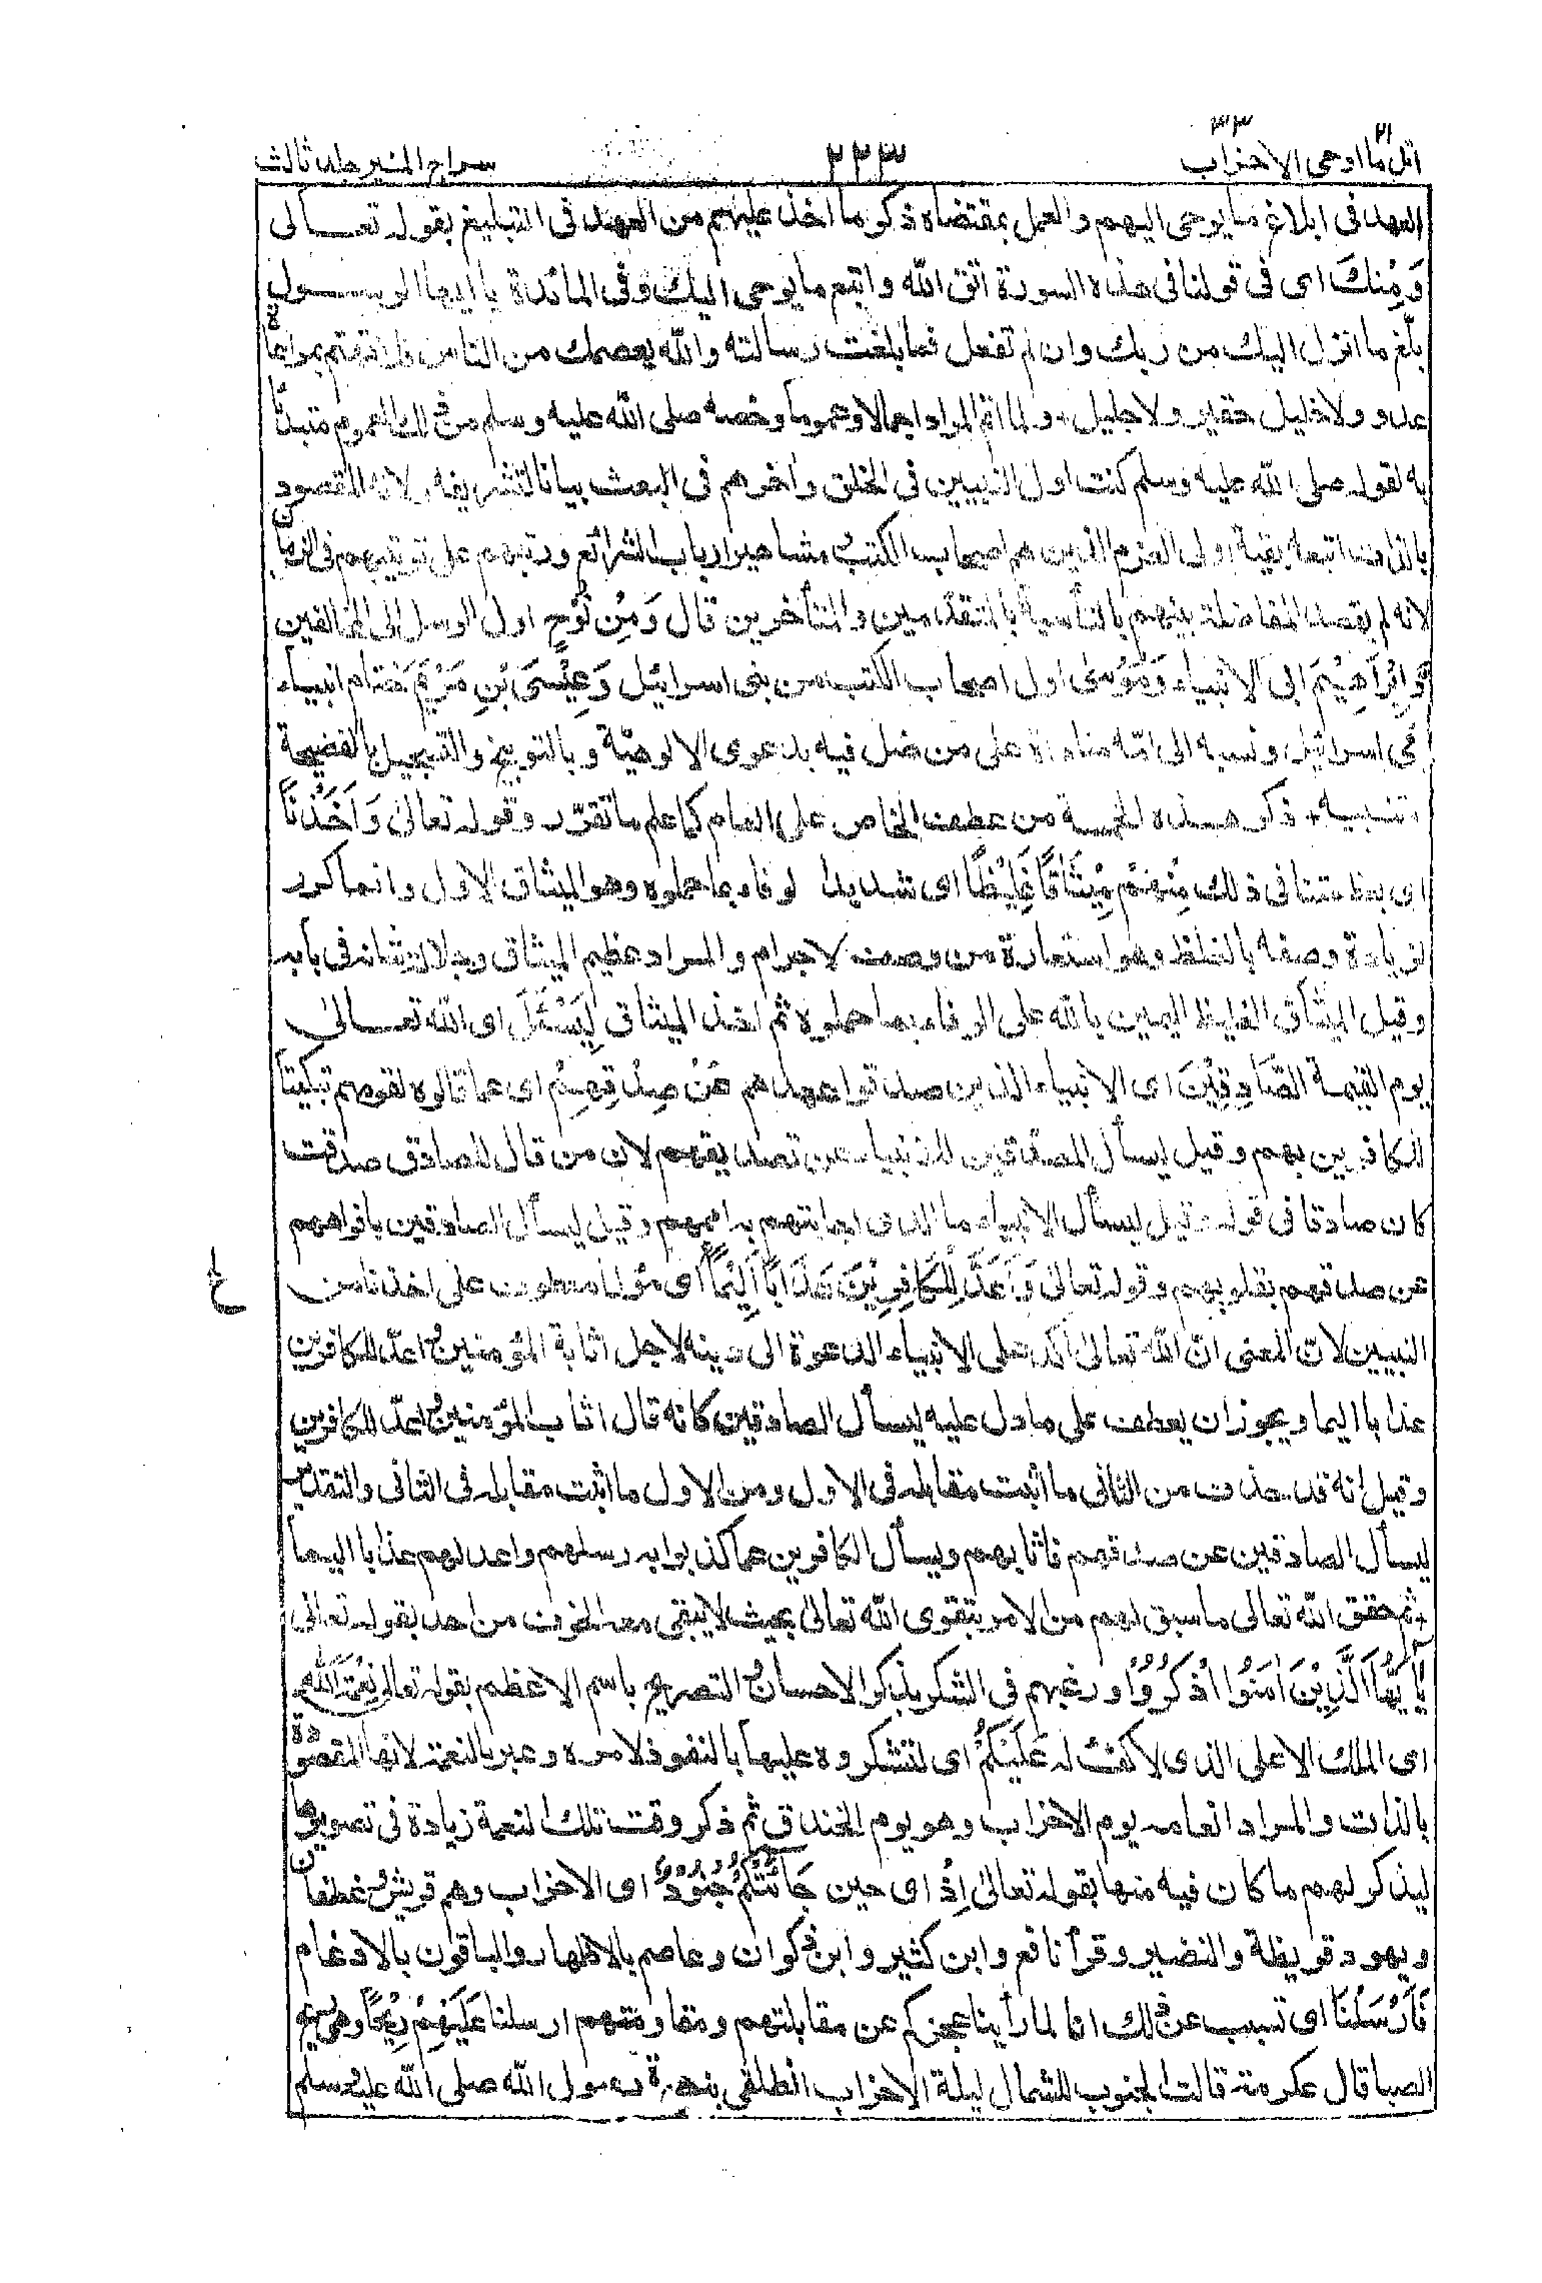 اتل ما اوحی ٢١ الاحزاب ٣٣
٢٢٣
سراج المنیر جلد ثالث
العهد فی ابلاغ ما یوحی الیهم والعمل بمقتضاه ذکر ما اخذ علیهم من العهد فی التبلیغ بقوله تعالی
وَمِنْكَ ای فی قولنا فی هذه السورة اتق الله واتبع ما یوحی الیك وفی المائدة یا ایها الرسول
بلّغ ما انزل الیك من ربك وان لم تفعل فما بلغت رسالته والله یعصمك من الناس فلا تهتم بمراعاة
عدو ولا خلیل حقیر ولا جلیل ولما اتم المراد اجمالا وعموما وخصه صلی الله علیه وسلم من ذلك العموم مبتدئا
به لقوله صلی الله علیه وسلم کنت اول النبیین فی الخلق واٰخرهم فی البعث بیانا لتشریفه ولانه المقصود
بالذات اتبعه بقیة اولی العزم الذین هم اصحاب الکتب ومشاهیر ارباب الشرائع ورتبهم علی ترتیبهم فی الزمان
لانه لم یقصد المفاضلة بینهم بالتأسیة بالمتقدّمین والمتأخرین قال وَمِنْ نُوْحٍ اول الرسل الی المخالفین
وَاِبْرَاهِیْمَ ابی الانبیاء وَمُوْسٰی اول اصحاب الکتب من بنی اسرائیل وَعِیْسَی بْنِ مَرْیَمَ ختام انبیاء
بنی اسرائیل ونسبه الی امّه مناداة علی من ضل فیه بدعوی الالوهیّة وبالتوبیخ والتسجیل بالفضیحة
تنبیه ذکر هذه الخمسة من عطف الخاص علی العام کما علم مما تقرّر وقوله تعالیٰ وَاَخَذْنَا
ای بعظمتنا فی ذلك مِنْهُمْ مِیْثَاقًا غَلِیْظًا ای شدیدا لوفاء بما حملوه وهو المیثاق الاول وانما کرر
لزیادة وصفه بالغلظ وهو استعارة من وصف الاجرام والمراد عظیم المیثاق وجلالة شانه فی بابه
وقیل المیثاق الغلیظ الیمین بالله علی الوفاء بما حملوه ثم اخذ المیثاق لِیَسْئَلَ ای الله تعالیٰ
یوم القیٰمة الصَّادِقِیْنَ ای الانبیاء الذین صدقوا عهدهم عَنْ صِدْقِهِمْ ای عما قالوه لقومهم تبکیتا
للکافرین بهم وقیل لیسأل المصدّقین للانبیاء عن تصدیقهم لان من قال للصادق صدقت
کان صادقا فی قوله وقیل لیسأل الانبیاء ما الذی اجابتهم به اممهم وقیل لیسأل الصادقین بافواههم
عن صدقهم بقلوبهم وقوله تعالیٰ وَاَعَدَّ لِلْکَافِرِیْنَ عَذَابًا اَلِیْمًا ای مؤلما معطوف علی اخذنا من
النبیین لانّ المعنی انّ الله تعالیٰ اکد علی الانبیاء الدعوة الی دینه لاجل اثابة المؤمنین واعدّ للکافرین
عذابا الیما ویجوز ان یعطف علی ما دل علیه لیسأل الصادقین کانه قال اثاب المؤمنین واعدّ للکافرین
وقیل انه قد حذف من الثانی ما اثبت مقابله فی الاول ومن الاول ما اثبت مقابله فی الثانی والتقدیر
لیسأل الصادقین عن صدقهم فاثابهم ویسأل الکافرین عما کذبوا به رسلهم واعد لهم عذابا الیما
ثم حقق الله تعالی ما سبق لهم من الامر بتقوی الله تعالیٰ بحیث لا یبقی معه الخوف من احد بقوله تعالی
یٰاَیُّهَا الَّذِیْنَ اٰمَنُوا اذْکُرُوْا ورغبهم فی الشکر بذکر الاحسان والتصریح باسم الاعظم بقوله تعالی نِعْمَةَ اللّٰهِ
ای الملك الاعلی الذی لا کفء له عَلَیْکُمْ ای لتشکروه علیها بالنفوذ لامره وعبر بالنعمة لانها المقصودة
بالذات والمراد انعامه یوم الاحزاب وهو یوم الخندق ثم ذکر وقت تلك النعمة زیادة فی تصویرها
لیذکر لهم ما کان فیه منها بقوله تعالیٰ اِذْ ای حین جَآءَتْکُمْ جُنُوْدٌ ای الاحزاب وهم قریش وغطفان
ویهود قریظة والنضیر وقرأ نافع وابن کثیر وابن ذکوان وعاصم بالاظهار والباقون بالادغام
فَاَرْسَلْنَا ای تسبب عن ذلك انا لما رأینا عجزکم عن مقابلتهم ومقاومتهم ارسلنا عَلَیْهِمْ رِیْحًا وهی ریح
الصبا قال عکرمة قالت الجنوب للشمال لیلة الاحزاب انطلقی بنصرة رسول الله صلی الله علیه وسلم